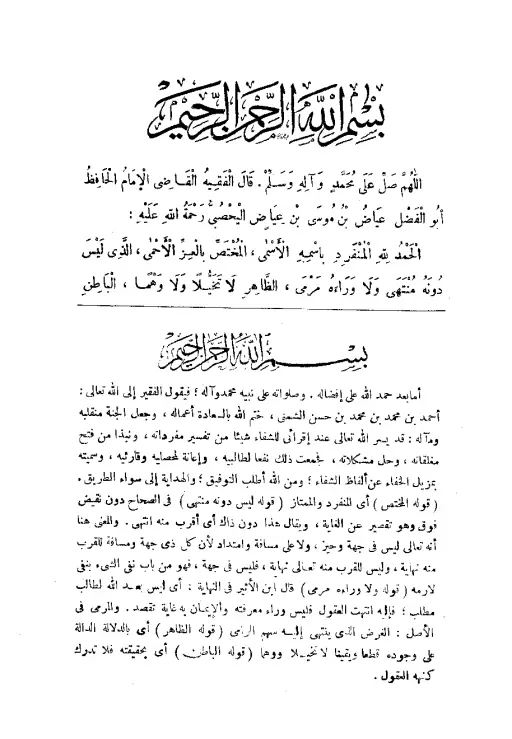 بسم الله الرحمن الرحيم
اللهم صل على محمد وآله وسلم. قال الفقيه القاضى الإمام الحافظ
أبو الفضل عياض بن موسى بن عياض اليحصبى رحمة الله عليه :
الحمد لله المنفرد باسمه الأسمى، المختص بالعز الأحمى، الذى ليس
دونه منتهى ولا وراءه مرمى، الظاهر لا تخيلا ولا وهما، الباطن
بسم الله الرحمن الرحيم
أما بعد حمد الله على إفضاله. وصلواته على نبيه محمد وآله؛ فيقول الفقير إلى الله تعالى :
أحمد بن محمد بن محمد بن حسن الشمنى، ختم الله بالسعادة أعماله، وجعل الجنة منقلبه
ومآله: قد يسر الله تعالى عند إقرائى للشفاء شيئا من تفسير مفرداته، ونبذا من فتح
مغلقاته، وحل مشكلاته، فجمعت ذلك نفعا لطالبيه، وإعانة لمحصليه وقارئيه، وسميته
بمزيل الخفاء عن ألفاظ الشفاء؛ ومن الله أطلب التوفيق؛ والهداية إلى سواء الطريق.
(قوله المختص) أى المنفرد والممتاز (قوله ليس دونه منتهى) فى الصحاح دون نقيض
فوق وهو تقصير عن الغاية، ويقال هذا دون ذاك أى أقرب منه انتهى. والمعنى هنا
أنه تعالى ليس فى جهة وحيز، ولا على مسافة وامتداد لأن كل ذى جهة ومسافة للقرب
منه نهاية، وليس للقرب منه تعالى نهاية، فليس فى جهة، فهو من باب نفى الشىء بنفى
لازمه (قوله ولا وراءه مرمى) قال ابن الأثير فى النهاية: أى ليس بعد الله لطالب
مطلب؛ فإليه انتهت العقول فليس وراء معرفته والإيمان به غاية تقصد. والمرمى فى
الأصل: الغرض الذى ينتهى إليه سهم الرامى (قوله الظاهر) أى بالدلالة الدالة
على وجوده قطعا ويقينا لا تخيلا ووهما (قوله الباطن) أى بحقيقته فلا تدرك
كنهه العقول.